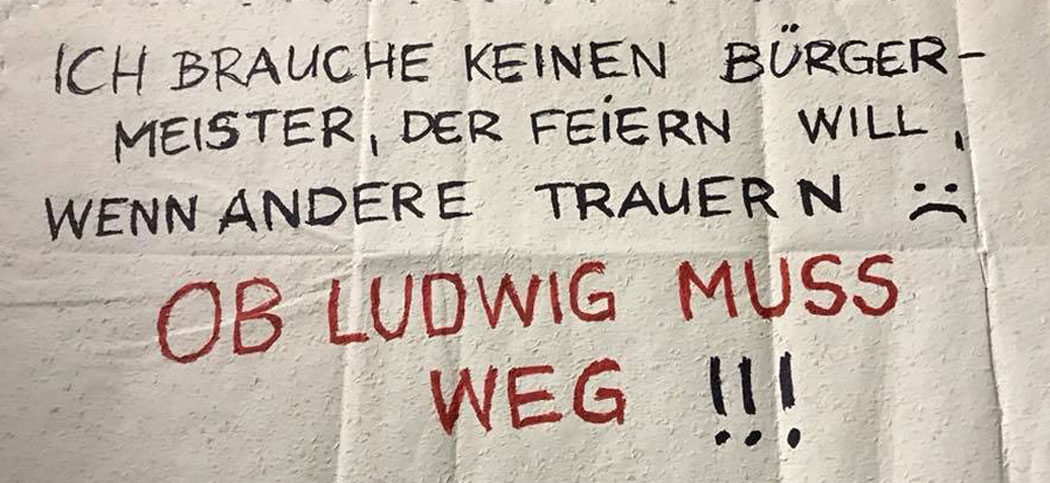 ICH BRAUCHE KEINEN BÜRGER-
MEISTER, DER FEIERN WILL,
WENN ANDERE TRAUERN :(
OB LUDWIG MUSS
WEG !!!